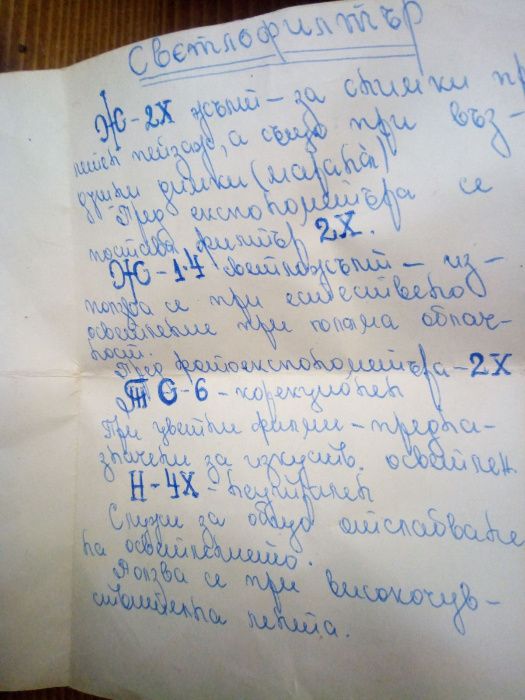 Светлофилтър
Ж-2Х жълт - за снимки пр
пейзаж, а също при въз-
душни димки (марань)
Пред експонометъра се
поставя филтър 2Х.
Ж-1.4 светложълт - из-
ползва се при естествено
осветление при голяма облач-
ност.
Пред фотоекспонометъра - 2Х
ТС-6 - корекционен
При цветни филми - предна-
значени за изкуств. осветлен.
Н-4Х - неутрален
Служи за общо отслабване
на осветлението.
Ползва се при високочув-
ствителна лента.